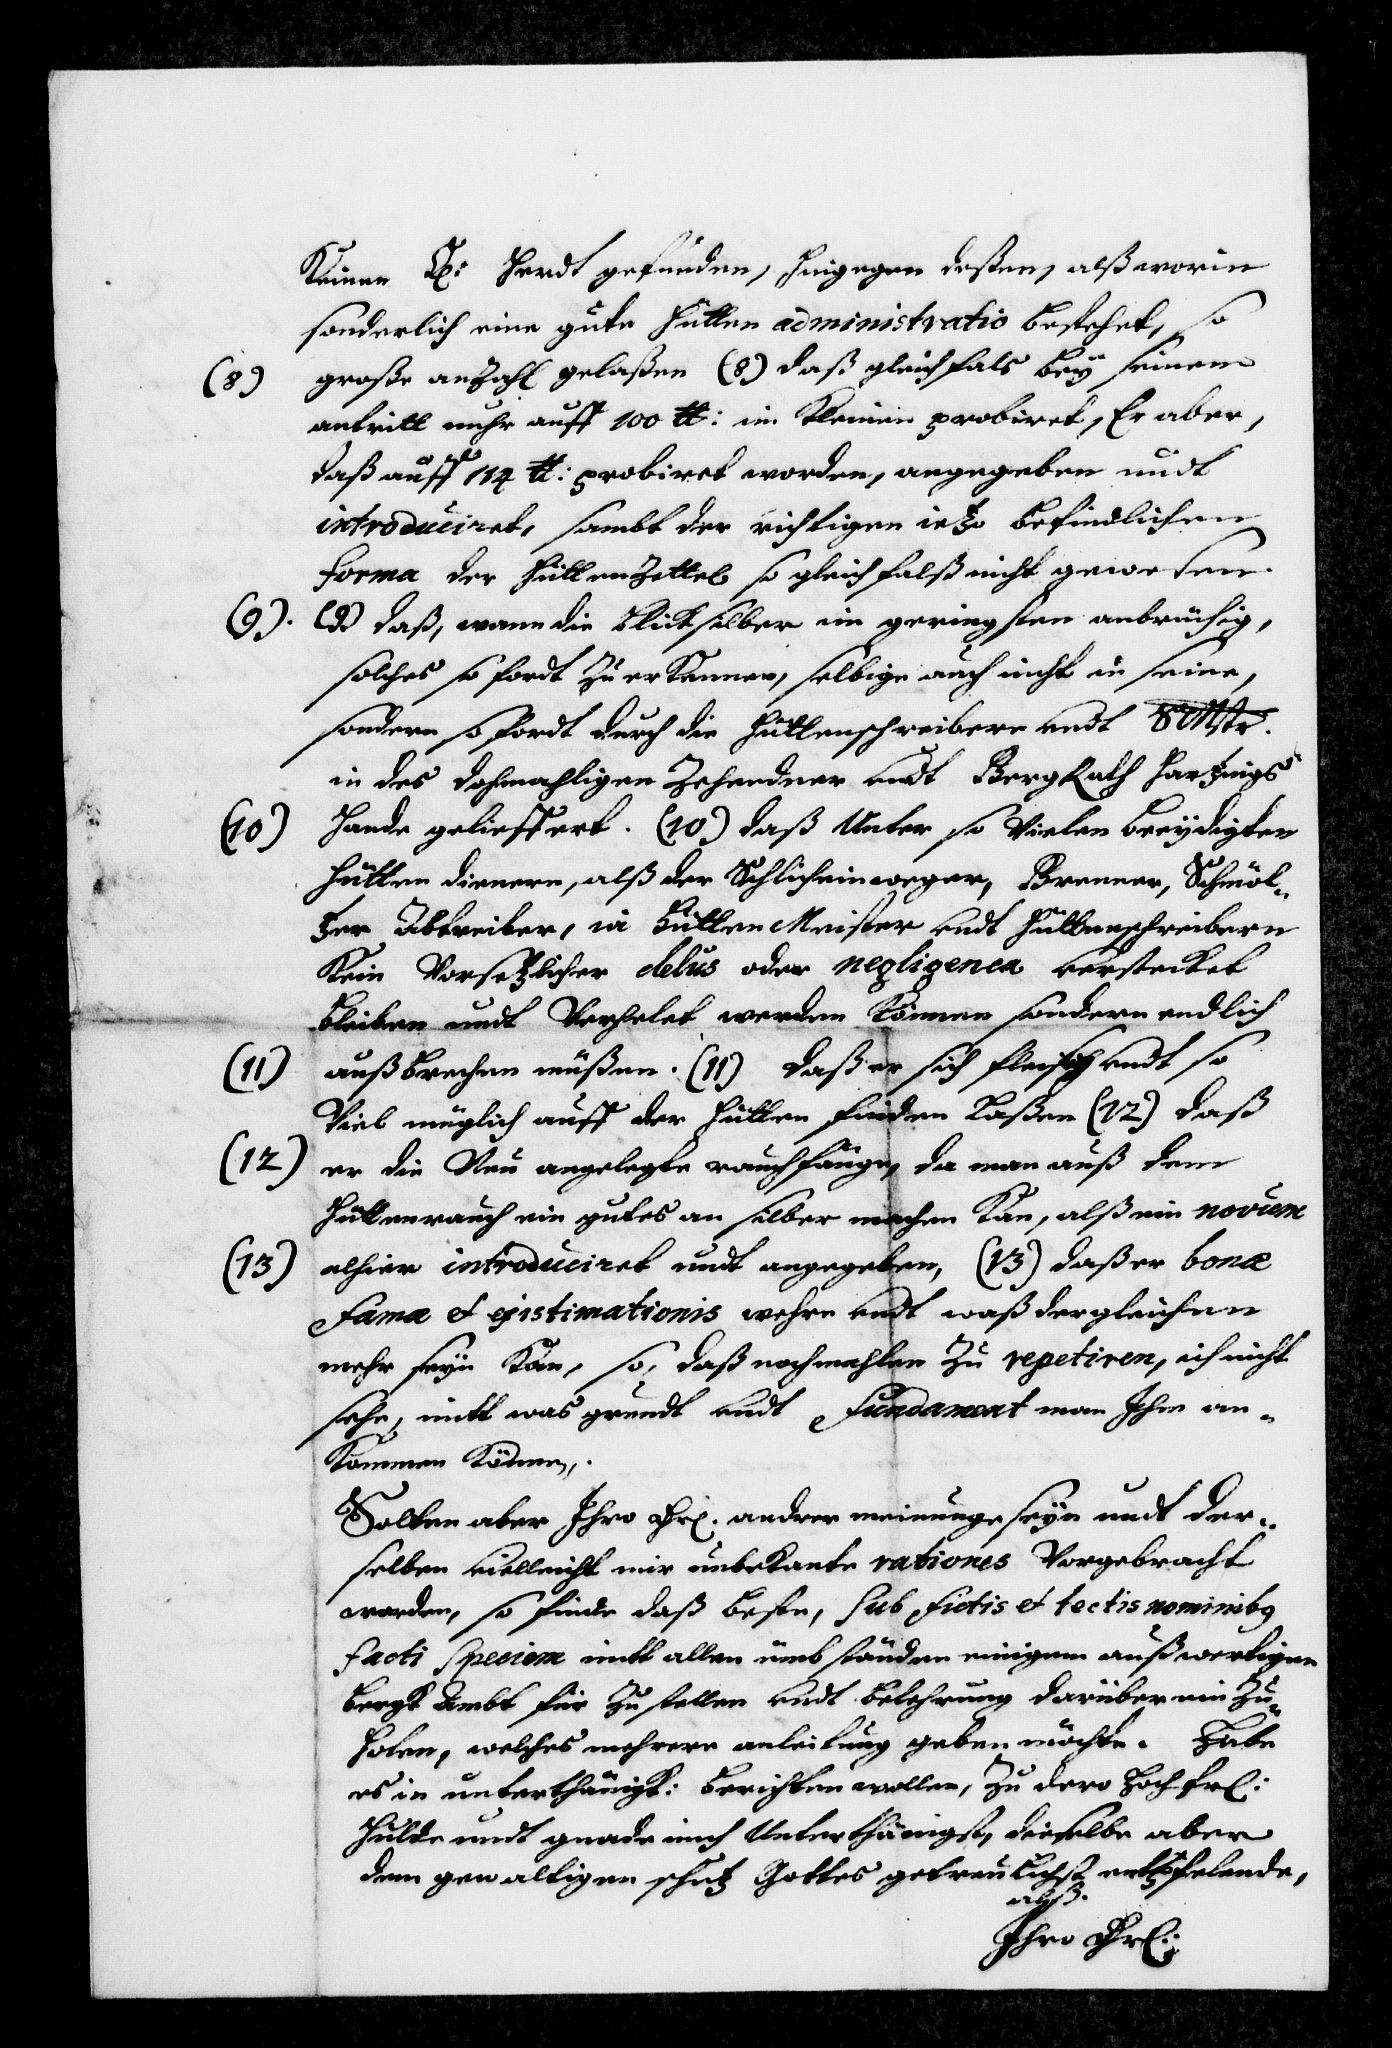 Keinen Herdt gefunden, hingegen deßen, alß worin
sonderlich eine gute Hütten administratio bestehet, so
(8) große anzahl gelaßen (8) daß gleichfals bey seinem
antritt nuhr auff 100 ℔: im Kleinen probiret, Er aber,
daß auff 114 ℔: probiret worden, angegeben undt
introduciret, sambt der richtigen ietzo befindlichen
forma der Hüttenzettel so gleichfalß nicht gewesen.
(9). (9) daß, wann die Blicksilber im geringsten anbrüchig,
solches so fordt zu erkennen, selbige auch nicht in seine,
sondern so fordt durch die Hüttenschreibere undt
in des dahmahligen Zehendner undt BergRath Hartzings
(10) Hande gelieffert. (10) daß Unter so vielen beeydigten
Hütten dienern, alß der Schlicheinweger, Brenner, Schmöl-
tzer Abtreiber, in HüttenMeister undt Hüttenschreibern
Kein Vorsetzlicher dolus oder negligenca verstecket
bleiben undt Verhelet werden können sondern endlich
(11) außbrechen müßen. (11) daß er sich fleisig undt so
Viel müglich auff der Hütten finden laßen (12) daß
(12) er die Neu angelegte rauchfänge, da man auß dem
Hüttenrauch ein gutes an silber machen kan, alß ein novum
(13) alhier introduciret undt angegeben, (13) daß er bonæ
famæ et existimationis wehre undt waß dergleichen
mehr seyn kan, so, daß nochmahlen zu repetiren, ich nicht
sehe, mitt was grundt undt fundament man Ihm an-
kommen könne.
Solten aber Ihro Drl. andrer meinunge seyn undt der-
selben vielleicht mir unbekante rationes Vorgebracht
worden, so finde daß beste, sub fictis et tectis nominibus
facti speciem mitt allen umbständen einigem außwertigen
bergk Ambt für zu stellen undt belehrung darüber ein zu-
holen, welches mehrere anleitung geben möchte. Habe
es in unterthänigk: berichten wollen, zu dero Hochfrl:
Hulde undt gnade mich Unterthänigst, dieselbe aber
dem gewaltigen schutz Gottes getreulichst entpfelende,
alß.
Ihro Drl: